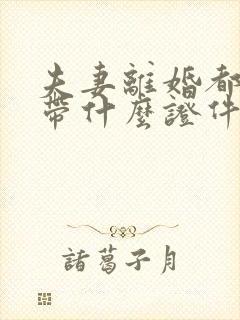 夫妻離婚都
帶什麼證件
諸葛子月